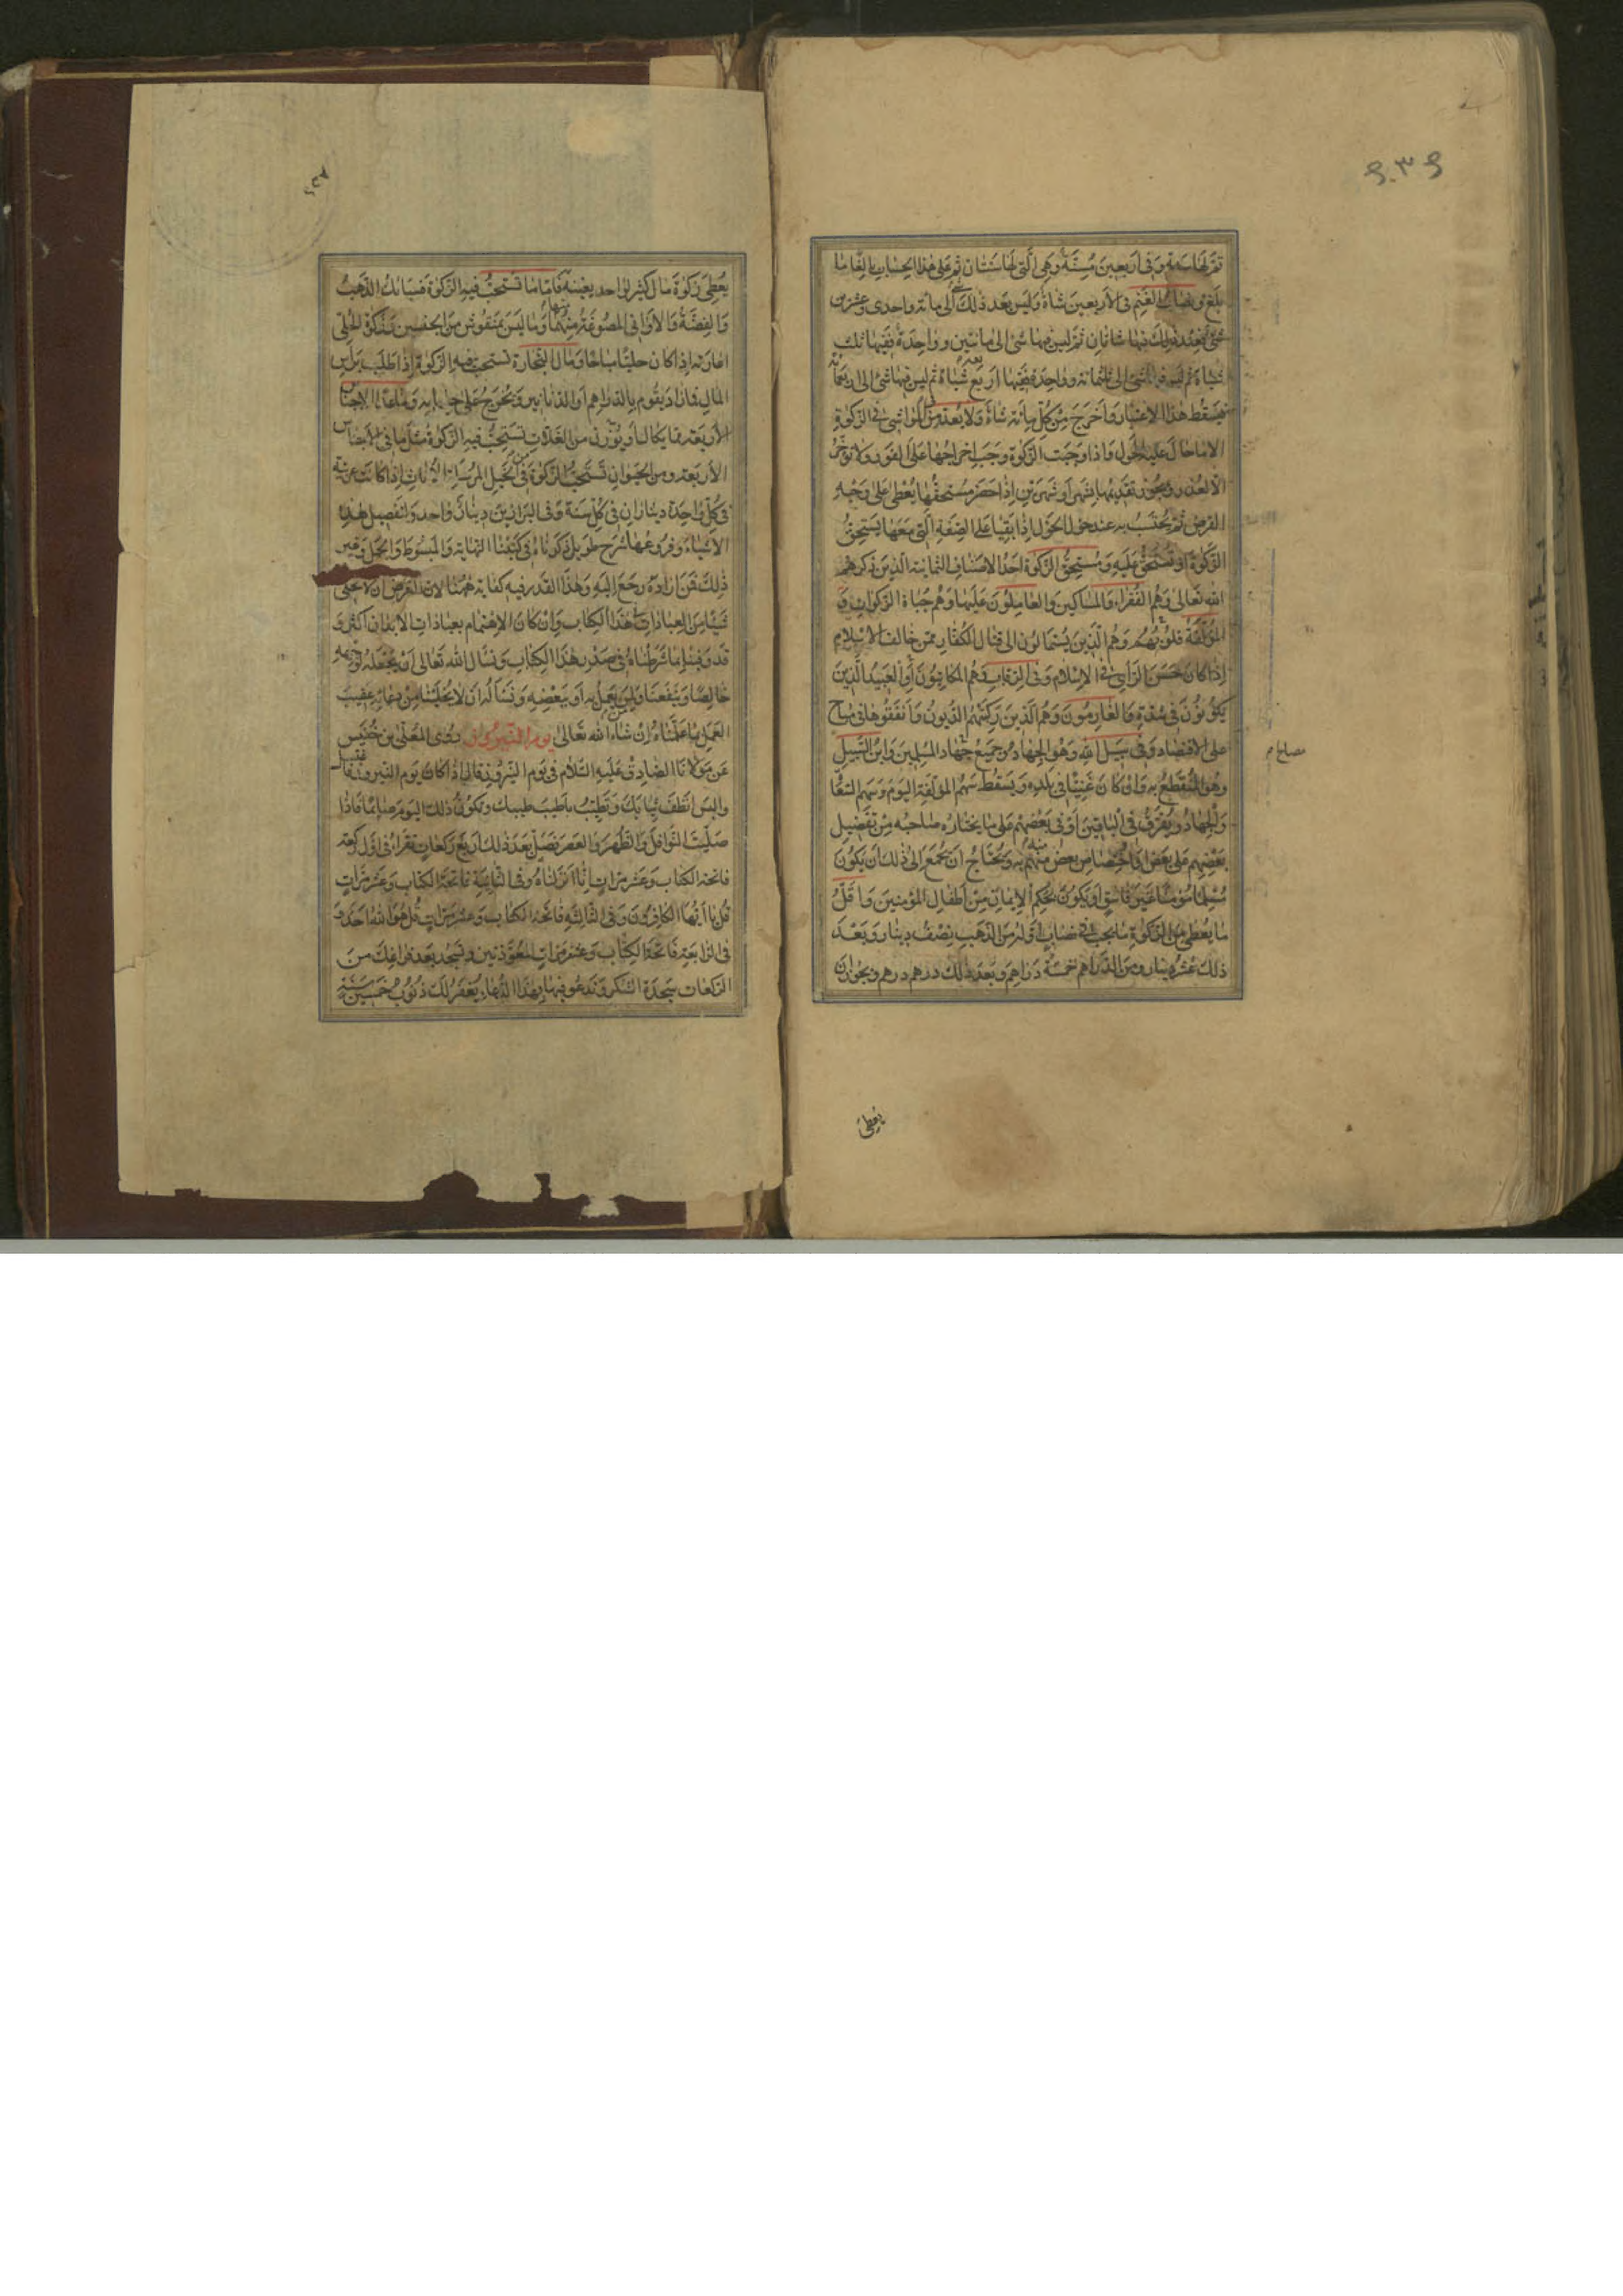 تم لها سنة وفى اربعين مسنة وهى التى لها سنتان ثم على هذا الحساب بالغا ما
بلغ ونصاب الغنم فى الاربعين شاة وليس بعد ذلك شئ الى مائة واحدى وعشرين
فعند ذلك فيها شاتان ثم ليس فيها شئ الى مائتين وواحدة ففيها ثلث
شياة ثم ليس فيها شئ الى ثلثمائة وواحدة ففيها اربع شياة ثم ليس فيها شئ الى اربعمائة
فيسقط هذا الاعتبار واخرج من كل مائة شاة ولا يعد من المواشى فى الزكوة
الا ما حال عليه الحول واذا وجبت الزكوة وجب اخراجها على الفور ولا تؤخر
الا لعذر ويجوز تقديمها بشهر او شهرين اذا حضر مستحقها يعطى على وجه
القرض ثم يحتسب به عند حول الحول اذا بقيا على الصفة التى معها يستحق
الزكوة او تستحق عليه ومستحق الزكوة احد الاصناف الثمانية الذين ذكرهم
الله تعالى وهم الفقراء والمساكين والعاملون عليها وهم جباة الزكوات و
المؤلفة قلوبهم وهم الذين يستمالون الى قتال الكفار ممن خالف الاسلام
اذا كان حسن الراى فى الاسلام وفى الرقاب وهم المكاتبون او العبيد الذين
يكونون فى شدة والغارمون وهم الذين ركبتهم الديون وانفقوها فى مباح
على الاقتصاد وفى سبيل الله وهو الجهاد وجميع مصالح المسلمين وابن السبيل
وهو المنقطع به وان كان غنيا فى بلده ويسقط سهم المؤلفة اليوم وسهم السعاة
والجهاد ويفرق فى الباقين او فى بعضهم على ما يختاره صاحبه من تفضيل
بعضهم على بعض او اختصاص بعض منهم به ويحتاج ان يجمع الى ذلك ان يكون
مسلما مؤمنا غير فاسق او يكون بحكم الايمان من اطفال المؤمنين واقل
ما يعطى من الزكوة ما يجب فى نصاب اوله من الذهب نصف دينار وبعد
ذلك عشر دينار ومن الدراهم خمسة دراهم وبعد ذلك درهم درهم ويجوز ان
يعطى
يعطى زكوة مال كثير لواحد يغنيه فاما ما تستحب فيه الزكوة فسبائك الذهب
والفضة والاوانى المصوغة منهما وما ليس بمنقوش من الجنسين وزكوة الحلى
اعارته اذا كان حليا مباحا ومال التجارة تستحب فيه الزكوة اذا طلب براس
المال فزاد يقوم بالدراهم او الدنانير وتخرج على حسابه وما عدا الاجناس
الاربعة مما يكال او يوزن من الغلات تستحب فيه الزكوة مثل ما فى الاجناس
الاربعة ومن الحيوان تستحب الزكوة فى الخيل المرسلة الاناث اذا كانت عربية
فى كل واحدة ديناران فى كل سنة وفى البراذين دينار واحد ولتفصيل هذه
الاشياء وفروعها شرح طويل ذكرناه فى كتبنا النهاية والمبسوط والجمل وغير
ذلك فمن اراده رجع اليه وهذا القدر فيه كفاية ههنا لان الغرض ان لا يخلى
شيئا من العبادات هذا الكتاب وان كان الاهتمام بعبادات الابدان اكثر و
قد وفينا بما شرطناه فى صدر هذا الكتاب ونسال الله تعالى ان يجعله لوجهه
خالصا وينفعنا ومن يعمل به او ببعضه ونساله ان لا يخلينا من دعائه عقيب
العمل بما علمناه ان شاء الله تعالى يوم النيروز روى المعلى بن خنيس
عن مولانا الصادق عليه السلام فى يوم النيروز قال اذا كان يوم النيروز فاغتسل
والبس انظف ثيابك وتطيب باطيب طيبك وتكون ذلك اليوم صائما فاذا
صليت النوافل والظهر والعصر فصل بعد ذلك اربع ركعات تقرأ فى اول ركعة
فاتحة الكتاب وعشر مرات انا انزلناه وفى الثانية فاتحة الكتاب وعشر مرات
قل يا ايها الكافرون وفى الثالثة فاتحة الكتاب وعشر مرات قل هو الله احد و
فى الرابعة فاتحة الكتاب وعشر مرات المعوذتين وتسجد بعد فراغك من
الركعات سجدة الشكر وتدعو فيها بهذا الدعاء يغفر لك ذنوب خمسين سنة